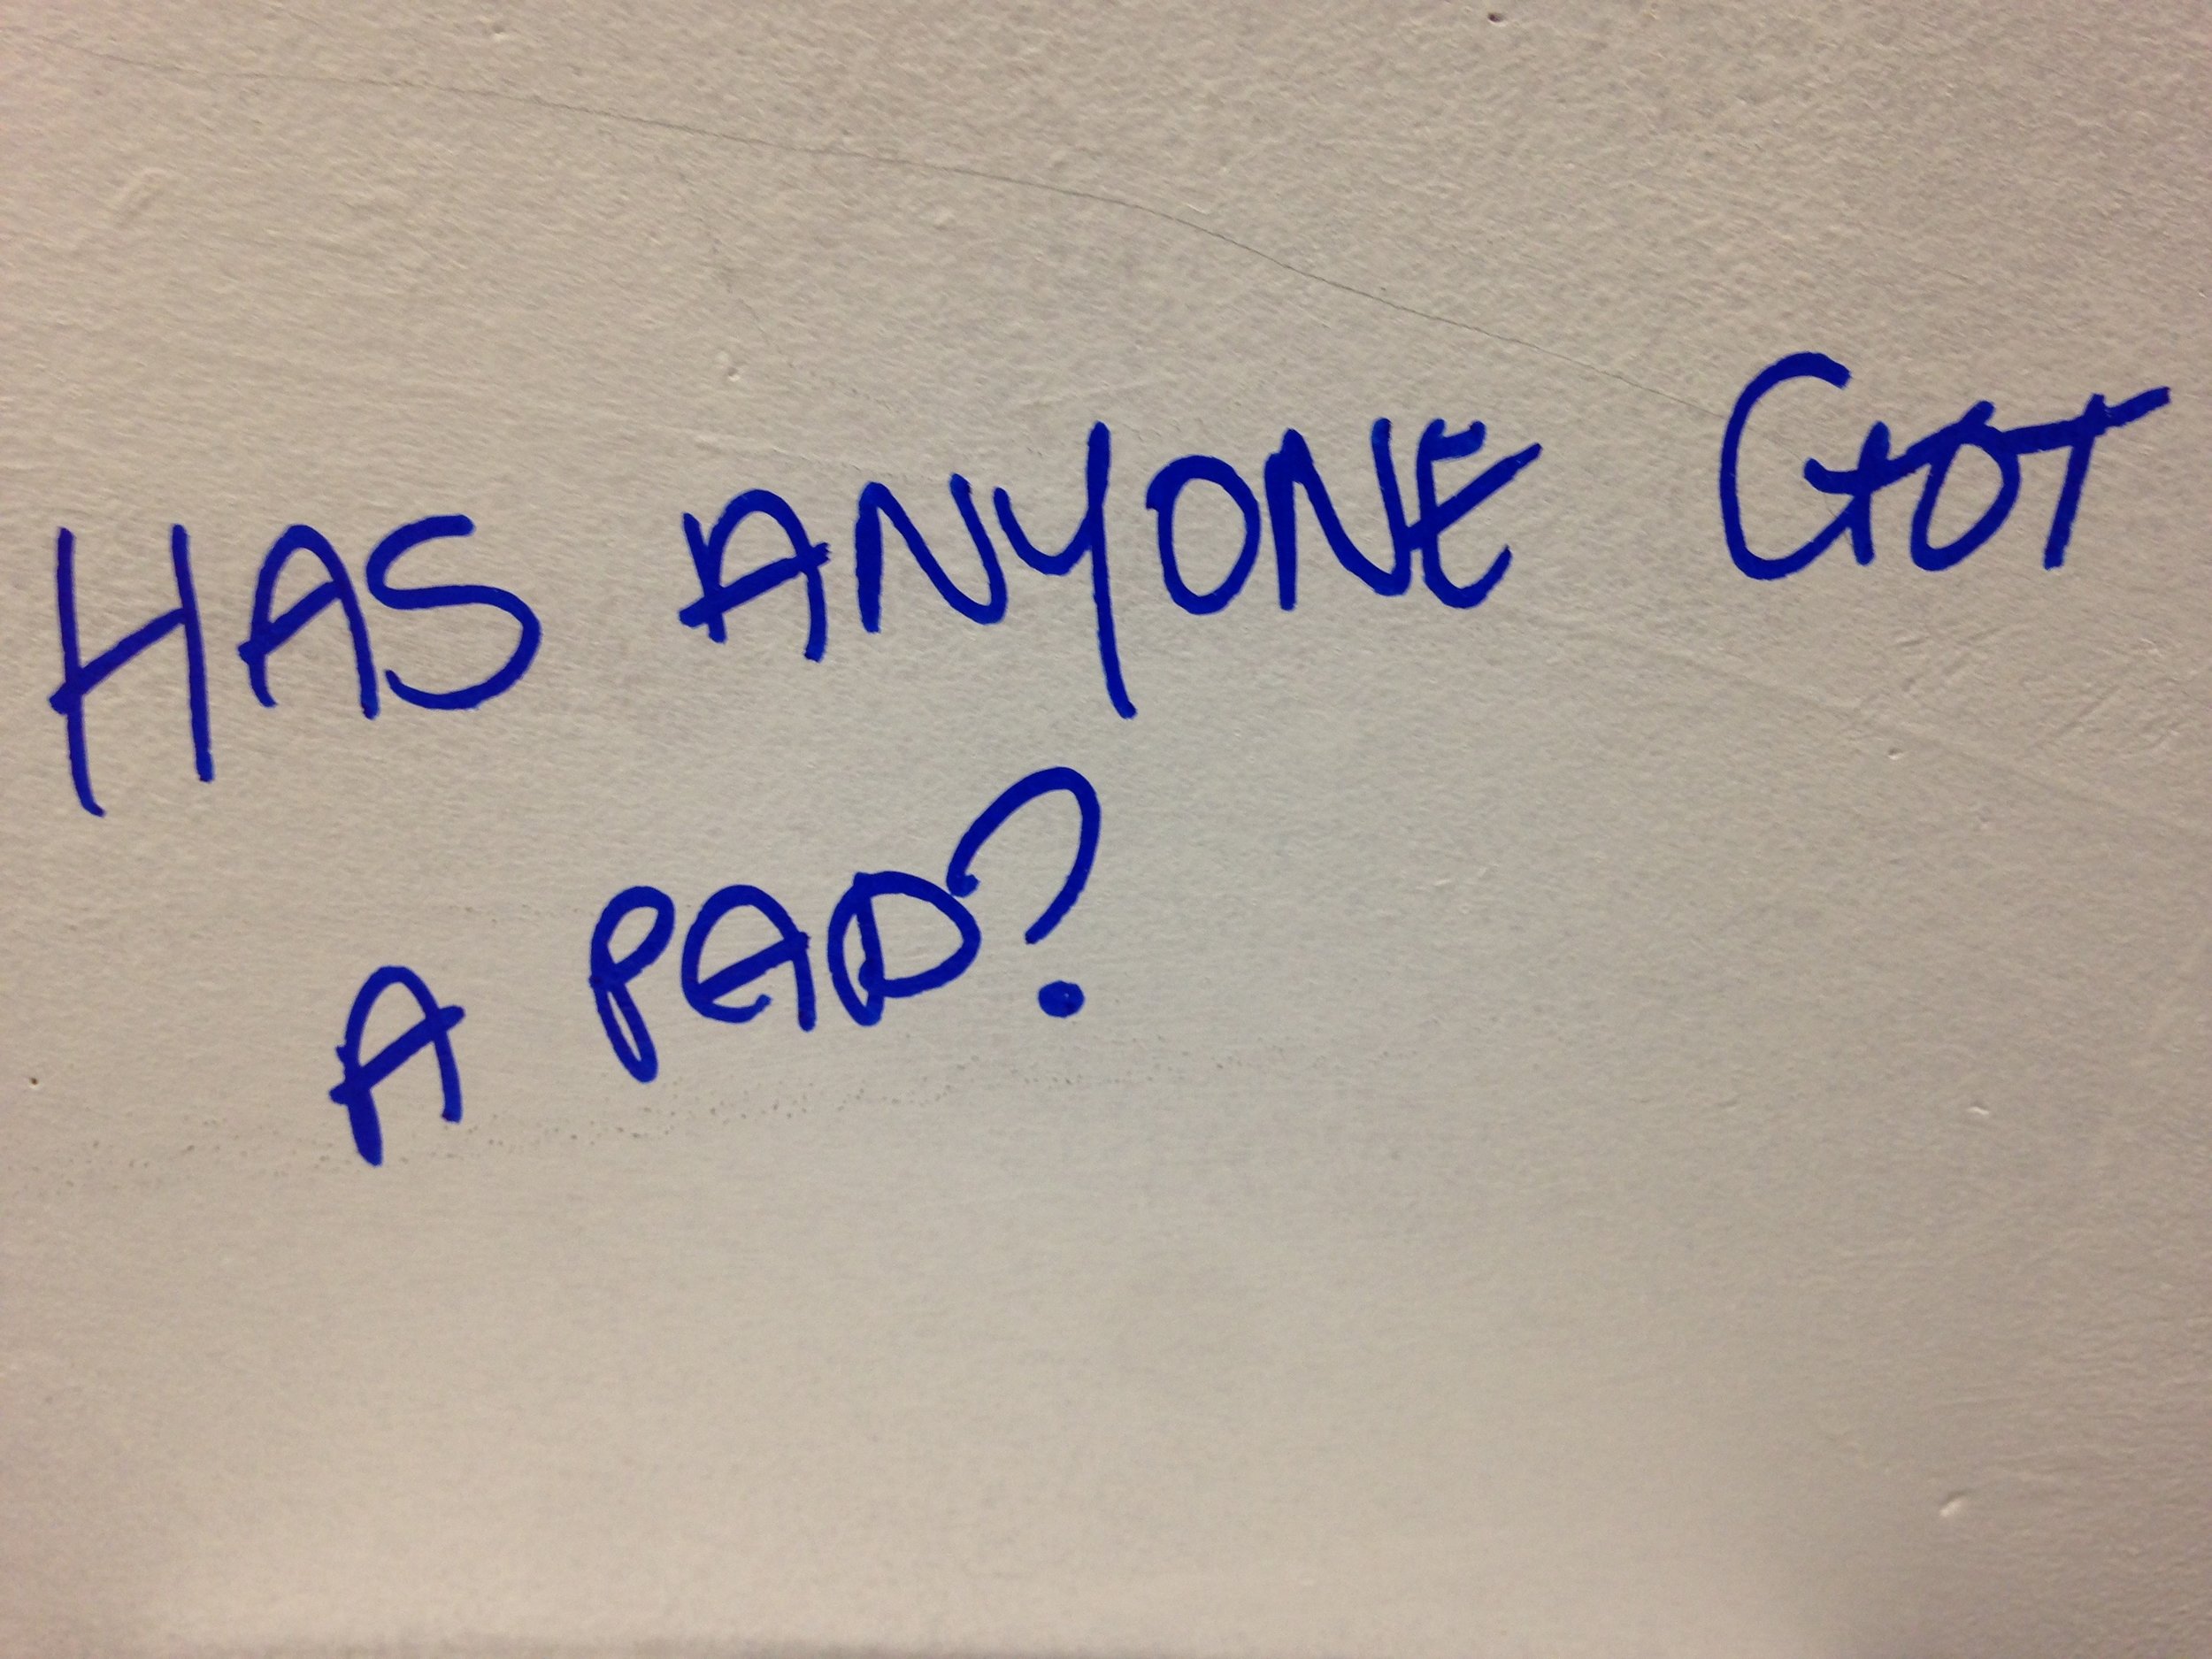 HAS ANYONE GOT
A PAD?